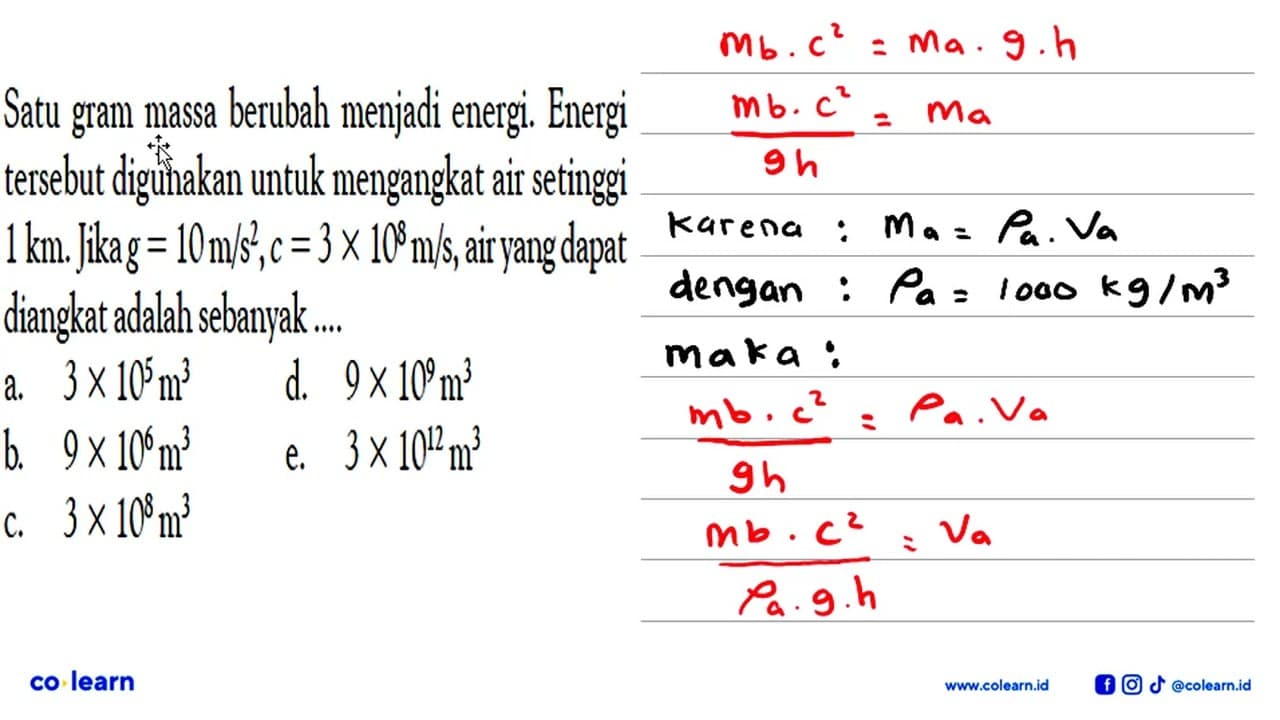 Satu gram massa berubah menjadi energi. Energi
tersebut digunakan untuk mengangkat air setinggi
1 km. Jika g = 10 m/s², c = 3 × 10⁸ m/s, air yang dapat
diangkat adalah sebanyak ....
a. 3 × 10⁵ m³ d. 9 × 10⁹ m³
b. 9 × 10⁶ m³ e. 3 × 10¹² m³
c. 3 × 10⁸ m³
mb . c² = ma . g . h
mb . c² / gh = ma
karena : ma = ρa . Va
dengan : ρa = 1000 kg/m³
maka :
mb . c² / gh = ρa . Va
mb . c² / ρa . g . h = Va
co learn
www.colearn.id @colearn.id